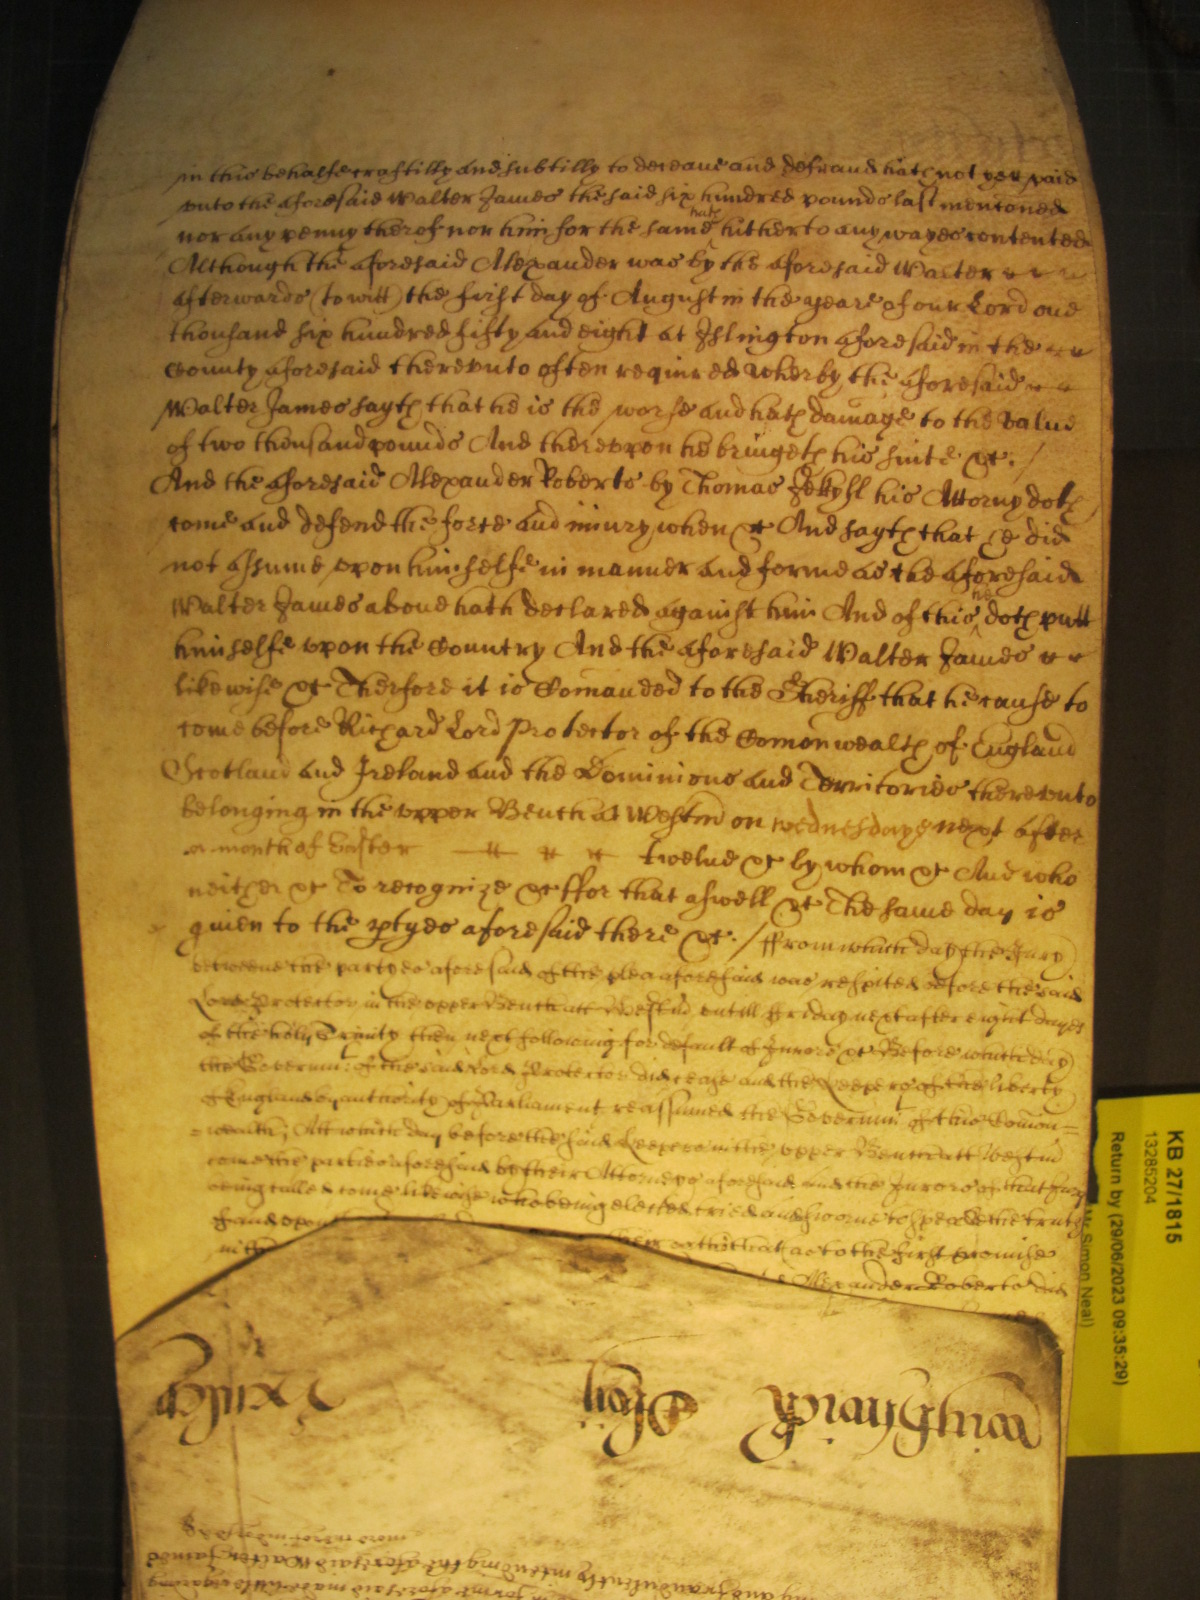 in this behalfe craftilly and subtilly to deceaue and defraud hath not yet paid
vnto the aforesaid Walter James the said six hundred pounds last mentoned
nor any penny therof nor him for the same hath hitherto any wayes contented
Although the aforesaid Alexander was by the aforesaid Walter
afterwards (to witt) the first day of August in the yeare of our Lord one
thousand six hundred fifty and eight at Islington aforesaid in the
County aforesaid therevnto often required Wherby the aforesaid
Walter James sayth that he is the worse and hath damage to the value
of two thousand pounds And therevpon he bringeth his suite &c.
And the aforesaid Alexander Roberts by Thomas Jekyll his Attorny doth
come and defend the force and iniury when &c And sayth that he did
not assume vpon himselfe in manner and forme as the aforesaid
Walter James aboue hath declared against him And of this he doth putt
himselfe vpon the Country And the aforesaid Walter James
likewise &c Therfore it is Comanded to the Sheriff that he cause to
come before Richard Lord Protector of the Comonwealth of England
Scotland and Ireland and the Dominions and Territories therevnto
belonging in the vpper Bench at Westm on wednesdaye next after
a month of Easter twelue &c by whom &c And who
neither &c To recognize &c ffor that aswell &c The same day is
giuen to the ptyes aforesaid there &c. ffrom which day the Jury
betweene the partyes aforesaid of the plea aforesaid was respited before the said
Lord Protector in the vpper Bench att Westm vntill ffriday next after eight dayes
of the holy Trinity then next following for default of Jurors &c Before which day
the Governmt of the said Lord Protector did cease and the Keepers of the liberty
of England by authority of Parliament reassumed the Governmt of this Comon=
=wealth, Att which day before the said Keepers in the vpper Bench att Westm
come the parties aforesaid by their Attorneys aforesaid and the Jurors of that Jury
being called come likewise who being elected tried and sworne to speake the truth
of and vpon
their oath that as to the first promise
Alexander Roberts did
KB 27/1815
13285204
Return by (29/06/2023 09:35:29)
Mr Simon Neal)
and fraudulently intending the aforesaid Walter James
forme aforesaid made little regarding